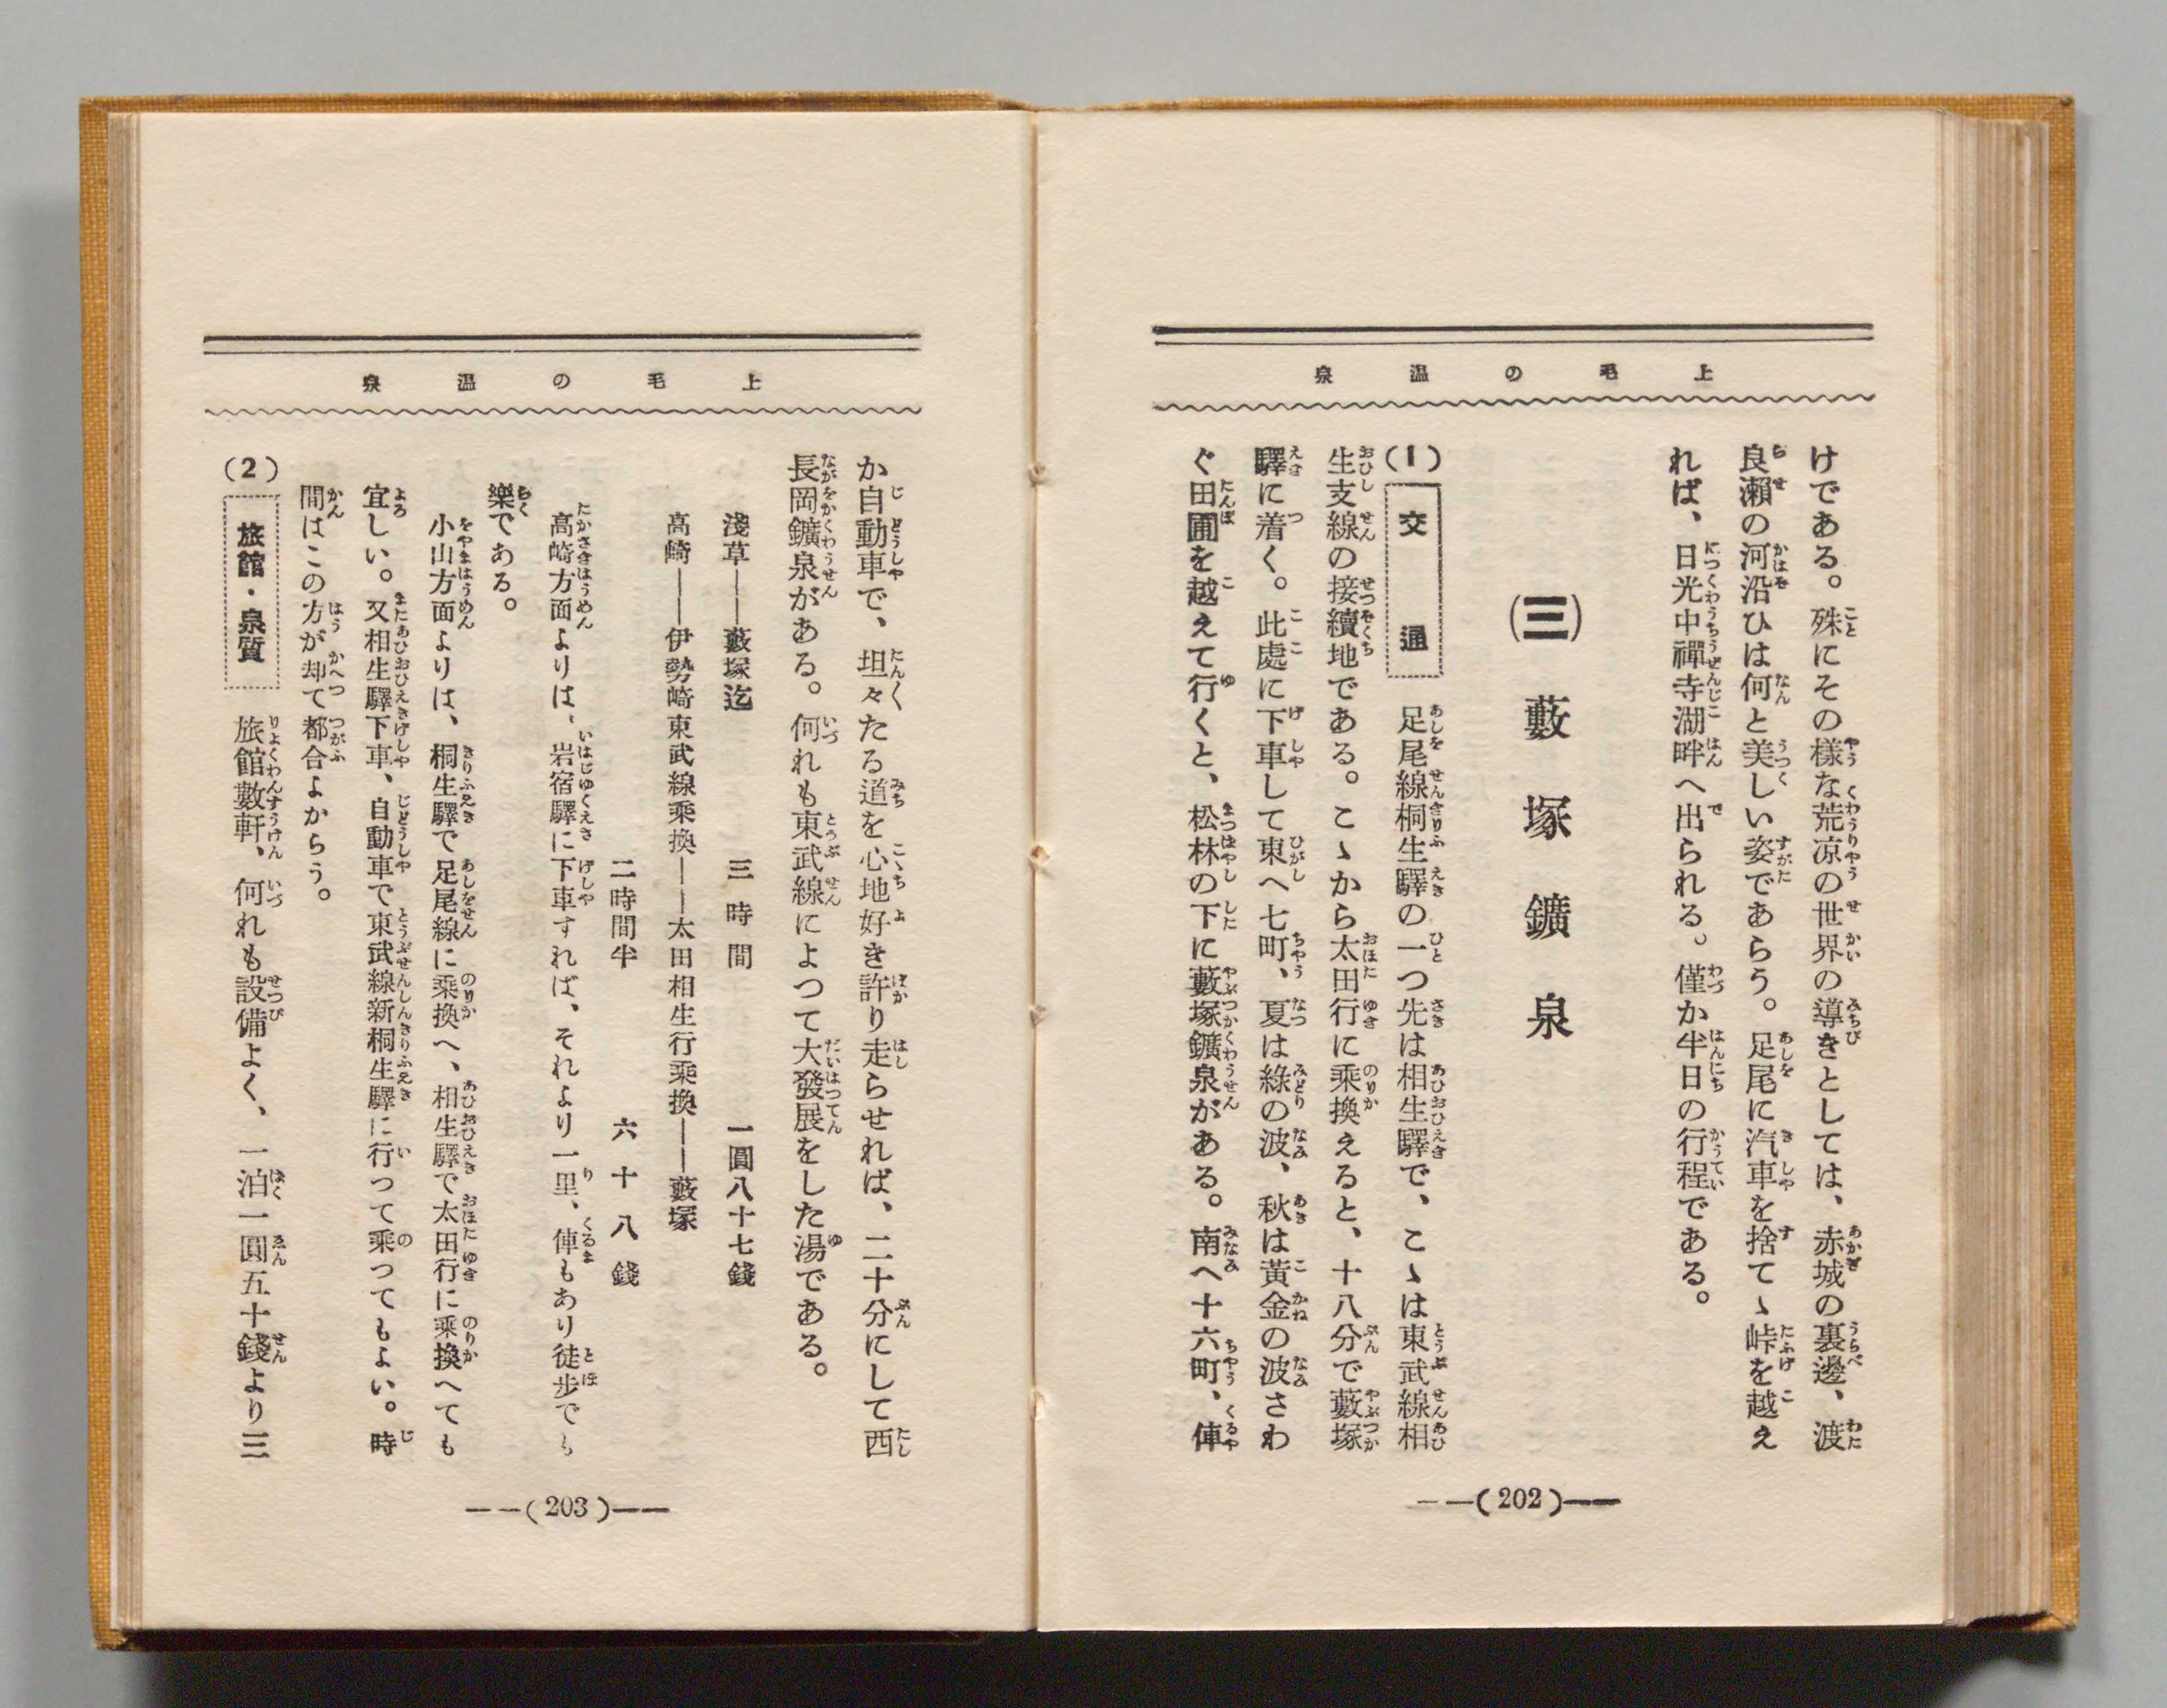 上毛の温泉
けである。殊にその樣な荒凉の世界の導きとしては、赤城の裏邊、渡
良瀨の河沿ひは何と美しい姿であらう。足尾に汽車を捨てゝ峠を越え
れば、日光中禪寺湖畔へ出られる。僅か半日の行程である。
㈢ 藪塚鑛泉
(1) 交通 足尾線桐生驛の一つ先は相生驛で、こゝは東武線相
生支線の接續地である。こゝから太田行に乘換えると、十八分で藪塚
驛に着く。此處に下車して東へ七町、夏は綠の波、秋は黃金の波さわ
ぐ田圃を越えて行くと、松林の下に藪塚鑛泉がある。南へ十六町、俥
――(202)――
上毛の温泉
か自動車で、坦々たる道を心地好き許り走らせれば、二十分にして西
長岡鑛泉がある。何れも東武線によつて大發展をした湯である。
淺草――藪塚迄 三時間 一圓八十七錢
高崎――伊勢崎東武線乘換――太田相生行乘換――藪塚
二時間半 六十八錢
高崎方面よりは、岩宿驛に下車すれば、それより一里、俥もあり徒步でも
樂である。
小山方面よりは、桐生驛で足尾線に乘換へ、相生驛で太田行に乘換へても
宜しい。又相生驛下車、自動車で東武線新桐生驛に行つて乘つてもよい。時
間はこの方が却て都合よからう。
(2) 旅館・泉質 旅館數軒、何れも設備よく、一泊一圓五十錢より三
――(203)――